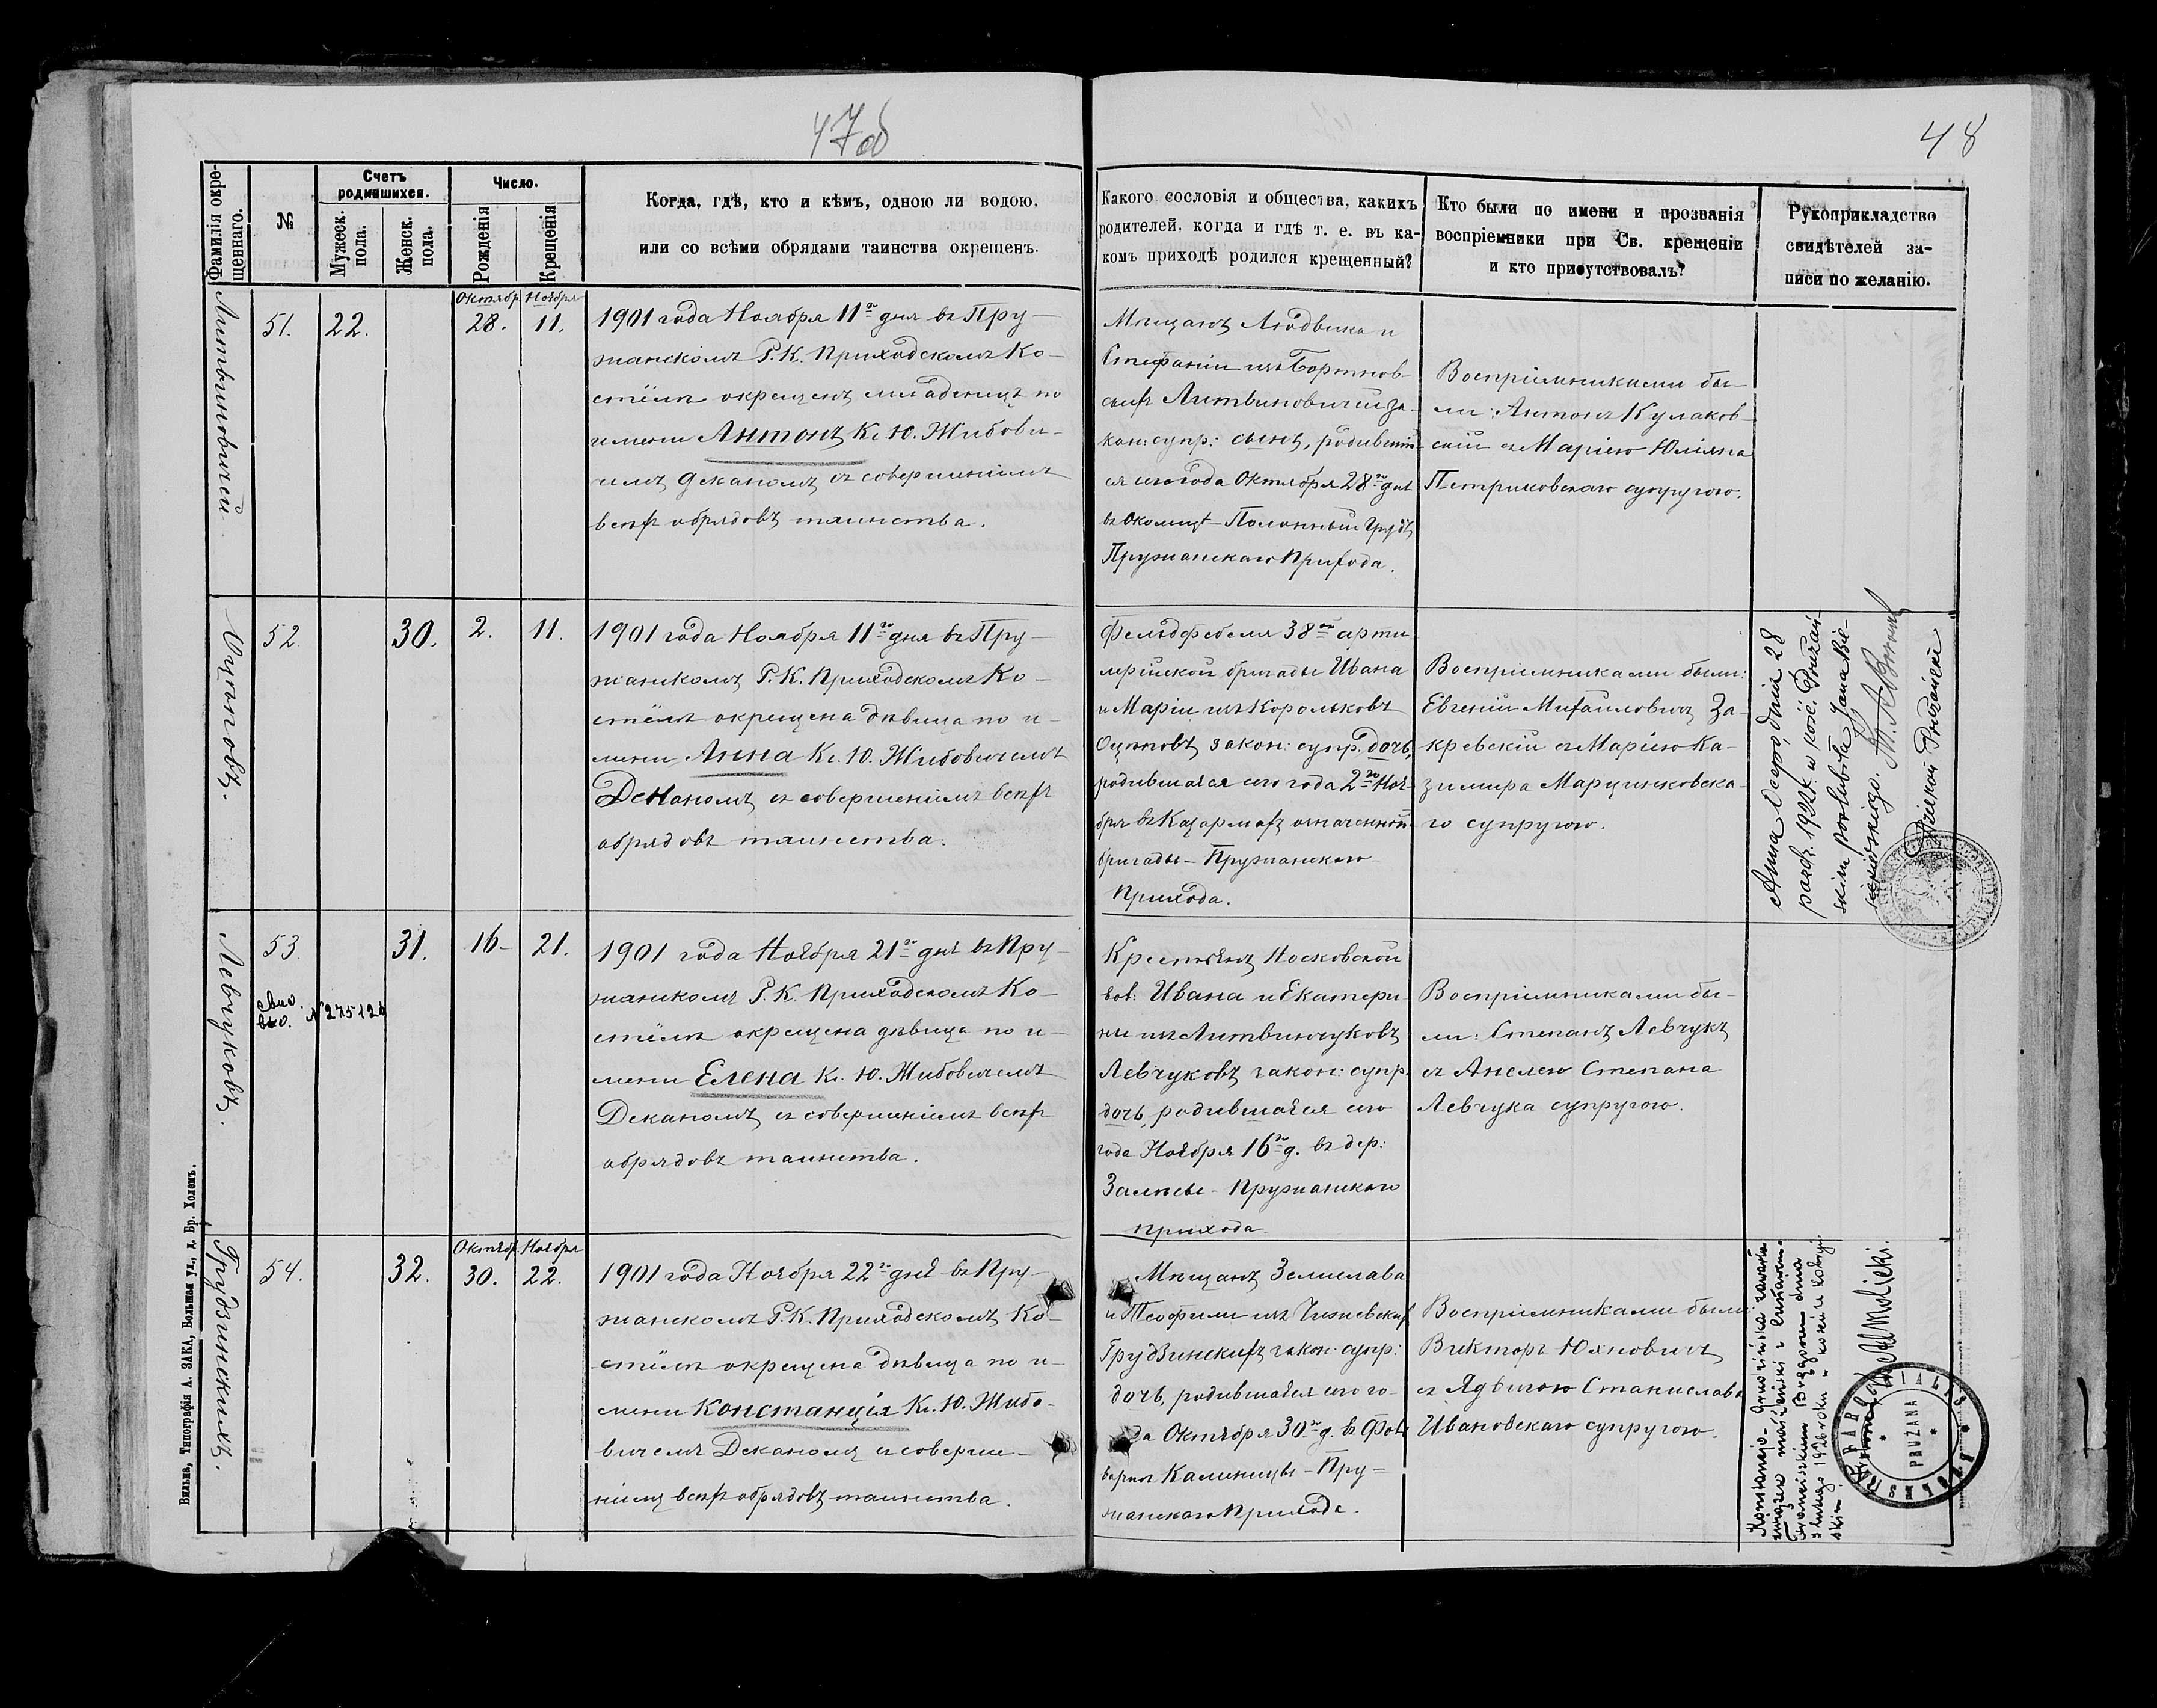 47об
48
Фамилія окре-
щеннаго.
№
Счетъ
родившихся.
Мужеск.
пола.
Женск.
пола.
Число.
Рожденія
Крещенія
Когда, гдѣ, кто и кѣмъ, одною ли водою,
или со всѣми обрядами таинства окрещенъ.
Какого сословія и общества, какихъ
родителей, когда и гдѣ т. е. въ ка-
комъ приходѣ родился крещенный?
Кто были по имени и прозванія
воспріемники при Св. крещеніи
и кто присутствовалъ?
Рукоприкладство
свидѣтелей за-
писи по желанію.
Литвиновичей
51.
22.
Октябр.
28.
Ноября
11.
1901 года Ноября 11го дня въ Пру-
жанскомъ Р. К. Приходскомъ Ко-
стёлѣ окрещенъ младенецъ по
имени Антонъ Кс. Ю. Жибови-
чемъ Деканомъ съ совершеніемъ
всѣхъ обрядовъ таинства.
Мѣщанъ Людвика и
Стефаніи изъ Бортнов-
скихъ Литвиновичей за-
кон: супр: сынъ, родившій-
ся сего года Октября 28го дня
въ Околицѣ Грудъ
Пружанскаго Прихода.
Воспріемниками бы-
ли: Антонъ Кулаков-
скій съ Маріею Юліяна
Петриковскаго супругою.
Оцуповъ.
52.
30.
2.
11.
1901 года Ноября 11го дня въ Пру-
жанскомъ Р. К. Приходскомъ Ко-
стёлѣ окрещена дѣвица по и-
мени Анна Кс. Ю. Жибовичемъ
Деканомъ съ совершеніемъ всѣхъ
обрядовъ таинства.
Фельдфебеля 38ой арти-
лерійской бригады Ивана
и Маріи изъ Корольковъ
закон: супр. дочь,
родившаяся сего года 2го Ноя-
бря въ Казармахъ означенной
бригады - Пружанскаго
Прихода.
Воспріемниками были:
Евгеній Михайловичъ За-
кревскій съ Маріею Ка-
зимира Марцинковска-
го супругою.
Anna dnia 28
paźdz. 192 r. w kośc. Prużań-
skim poślubiła Jana
Левчуковъ.
53.
31.
16-
21.
№ 275126
1901 года Ноября 21го дня въ Пру-
жанскомъ Р. К. Приходскомъ Ко-
стёлѣ окрещена дѣвица по и-
мени Елена Кс. Ю. Жибовичемъ
Деканомъ съ совершеніемъ всѣхъ
обрядовъ таинства.
Крестьянъ Носковской
вол: Ивана и Екатери-
ны изъ Литвинчуковъ
Левчуковъ закон: супр.
дочь, родившаяся сего
года Ноября 16го д. въ дер:
Залѣсье - Пружанскаго
прихода
Воспріемниками бы-
ли: Степанъ Левчукъ
съ Анелею Степана
Левчука супругою.
Грудзинскихъ.
54.
32.
Октябр.
30.
Ноября
22.
1901 года Ноября 22го дня въ Пру-
жанскомъ Р. К. Приходскомъ Ко-
стёлѣ окрещена дѣвица по и-
мени Констанція Кс. Ю. Жибо-
вичемъ Деканомъ съ соверше-
ніемъ всѣхъ обрядовъ таинства.
Мѣщанъ Земислава
и Теофили изъ Чижевскихъ
Грудзинскихъ закон: супр:
дочь, родившаяся сего го-
да Октября 30го д. въ Фоль-
варкѣ Калиницы - Пру-
жанскаго Прихода.
Воспріемниками были
Викторъ Юхновичъ
съ Ядвигою Станислава
Ивановскаго супругою.
Konstancja Grudzińska zawarła
związek małżeński z
Franciszkiem dnia
3 lutego 1926 roku w kościele Kobryń-
skim.
PRUŻANA
Вильна, Типографія А. ЗАКА, Большая ул., д. Бр. Холемъ.